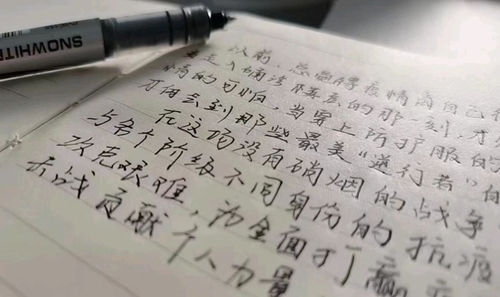 SNOWHITE
以前,总觉得疫情离自己很
走入确诊隔离的那一刻,才
情的可怕,当穿上防护服的
才体会到那些最美“逆行者”的
在这场没有硝烟的战争
与各个阶级不同身份的抗疫
攻克艰难,为全面打赢
抗战贡献个人力量